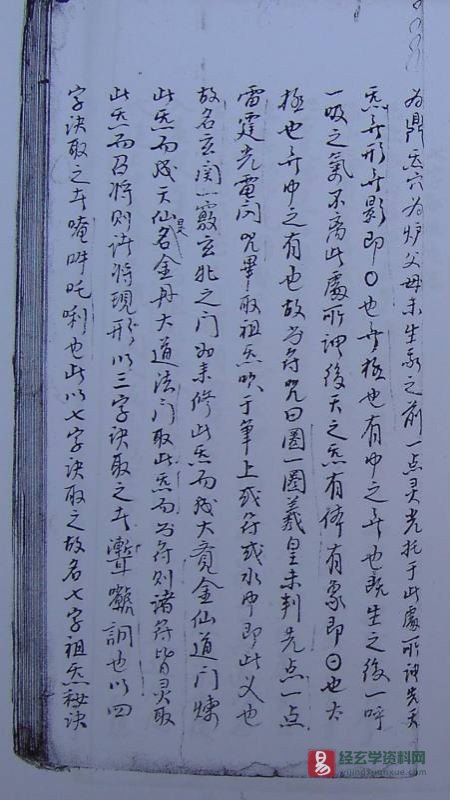 为鼎炁穴为炉父母未生我之前一点灵光托于此处所谓先天
炁无形无影即〇也无极也有中之无也既生之后一呼
一吸之氣不离此處所谓后天之炁有体有象即⊙也太
极也无中之有也故书符咒曰圈一圈羲皇未判先点一点
雷霆光電闪咒畢取祖炁吹于筆上或符或水中即此义也
故名玄関一竅玄牝之门如来修此炁而成大覺金仙道门煉
此炁而成天仙名是金丹大道法门取此炁而书符则诸符皆灵取
此炁而召将则诸将現形以三字诀取之
也以四
字诀取之
唵吽吒唎也此以七字诀取之故名七字祖炁秘诀
易
经玄学资料网